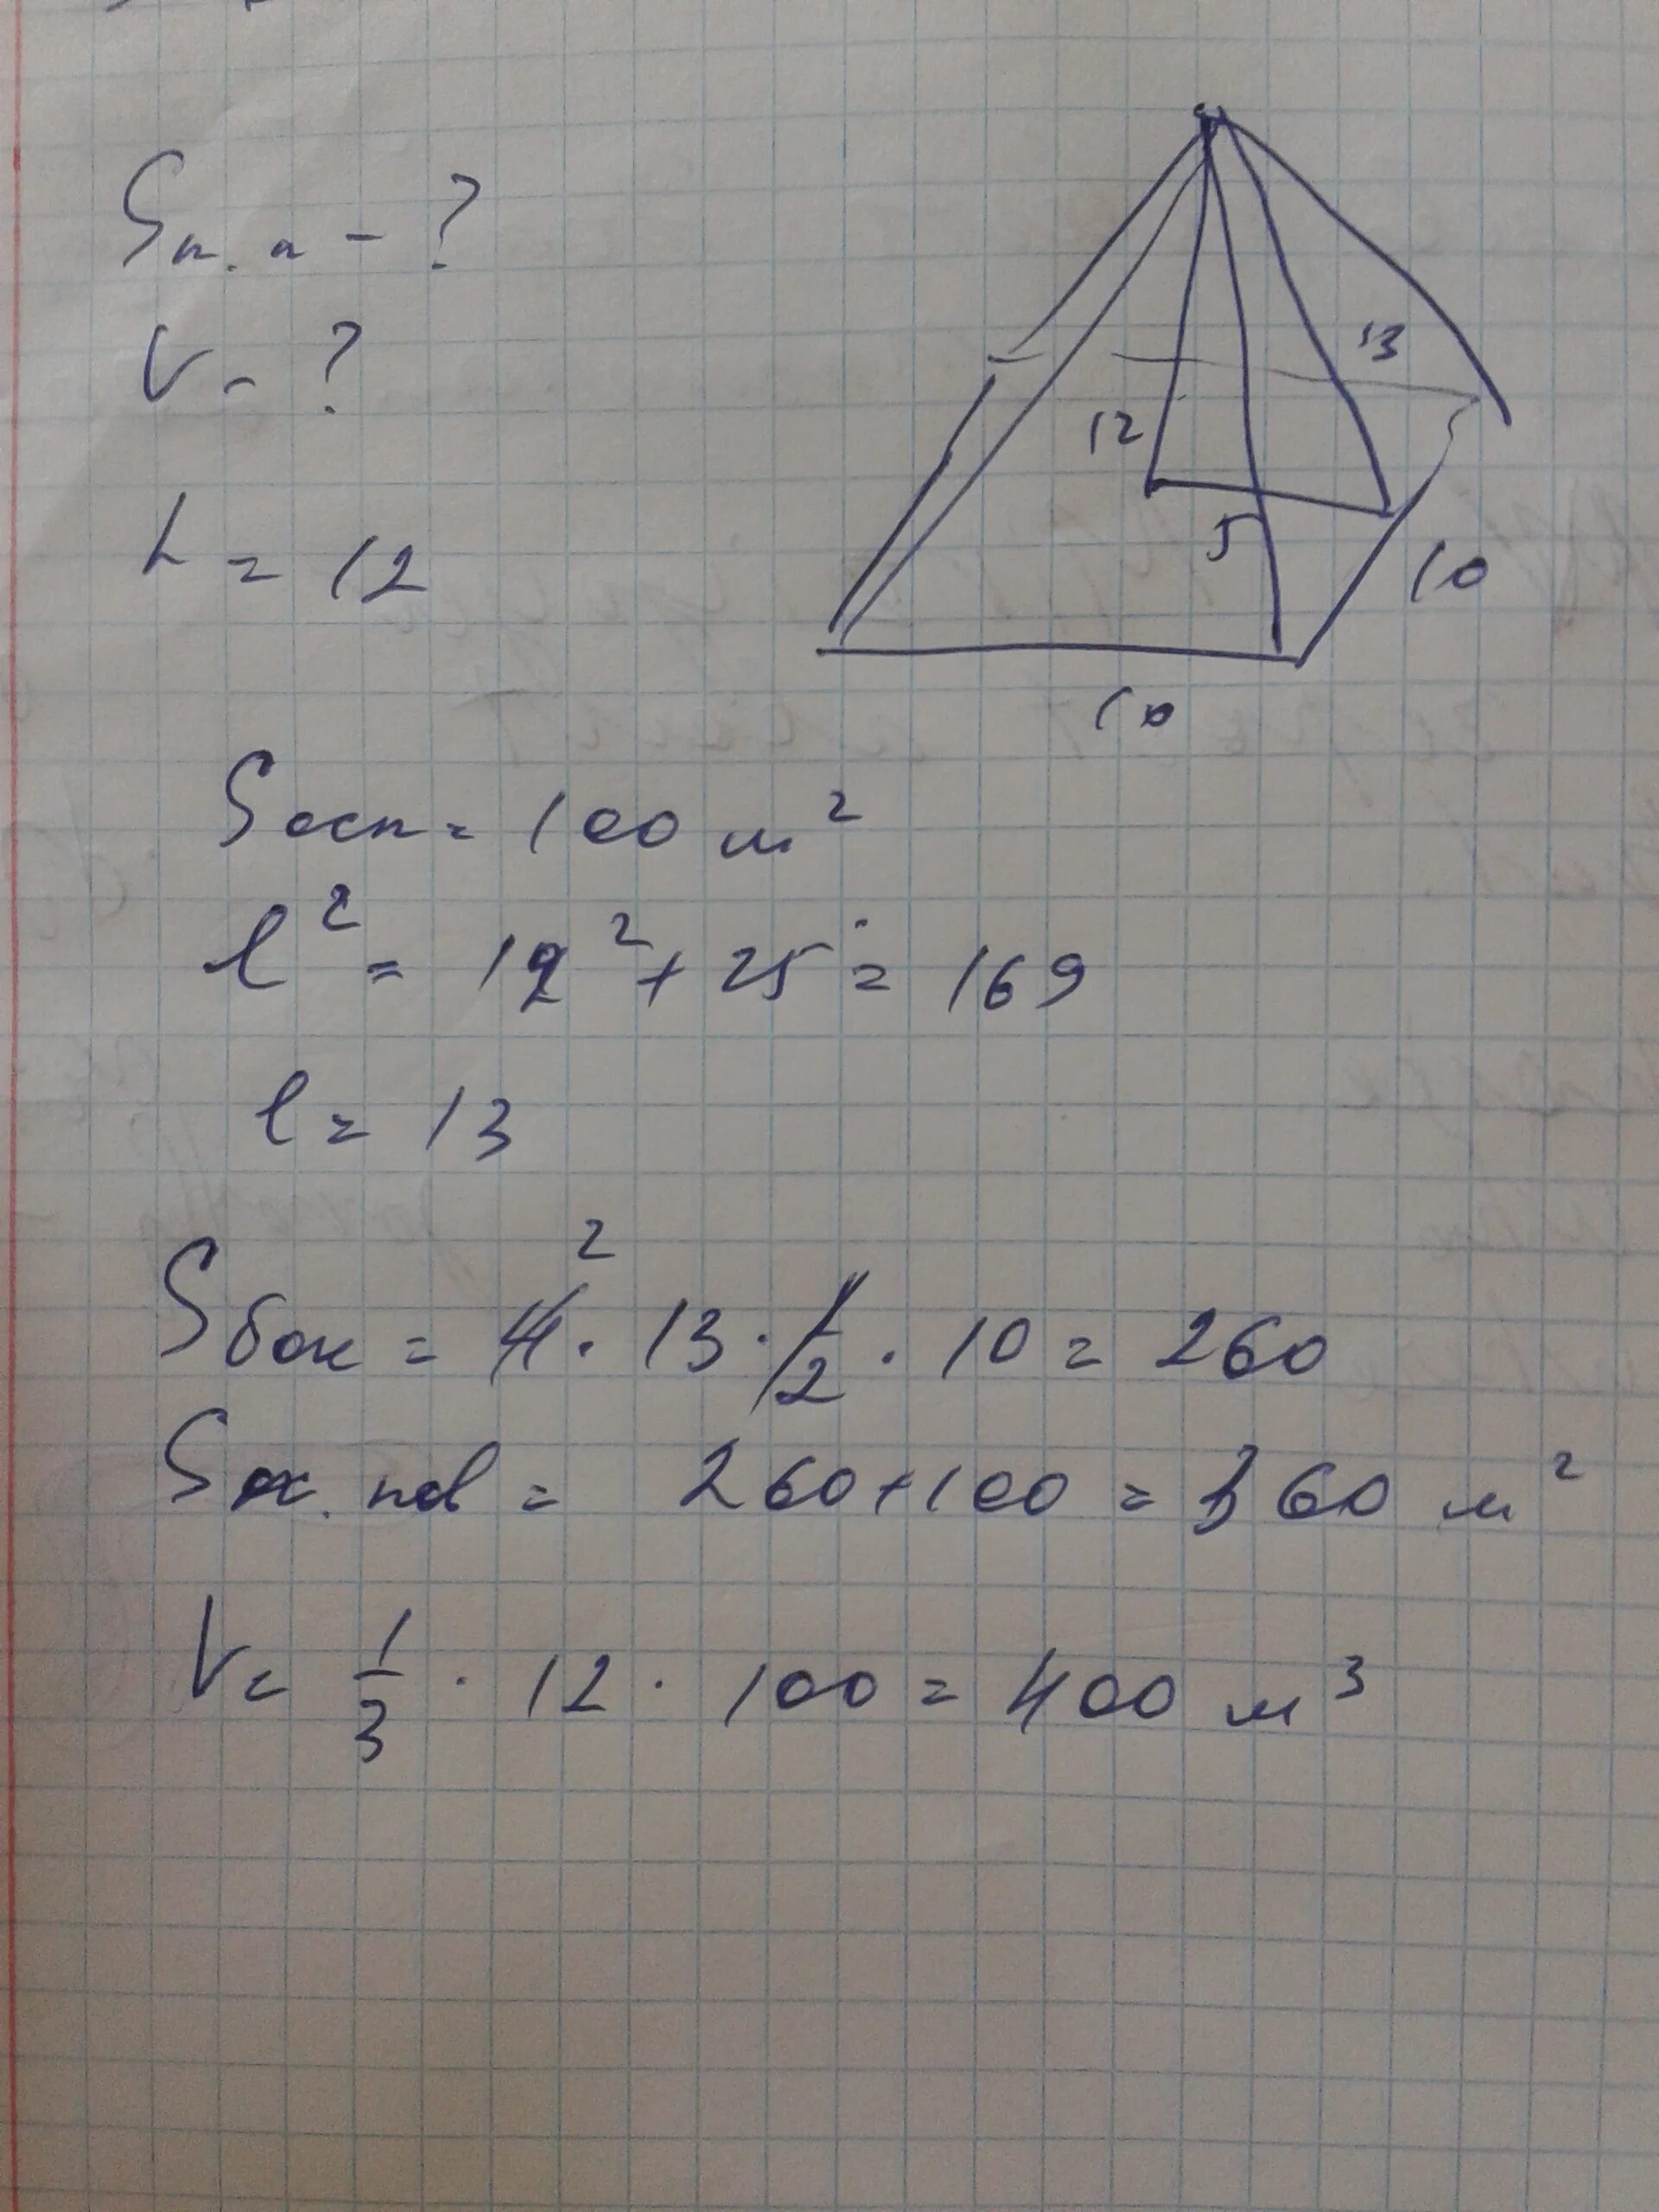 Sп.п - ?
V - ?
h = 12
12
13
5
10
10
Sосн = 100 м²
l² = 12² + 25 = 169
l = 13
2
Sбок = 4 · 13 · 1/2 · 10 = 260
260 + 100 = 360 м²
V = 1/3 · 12 · 100 = 400 м³